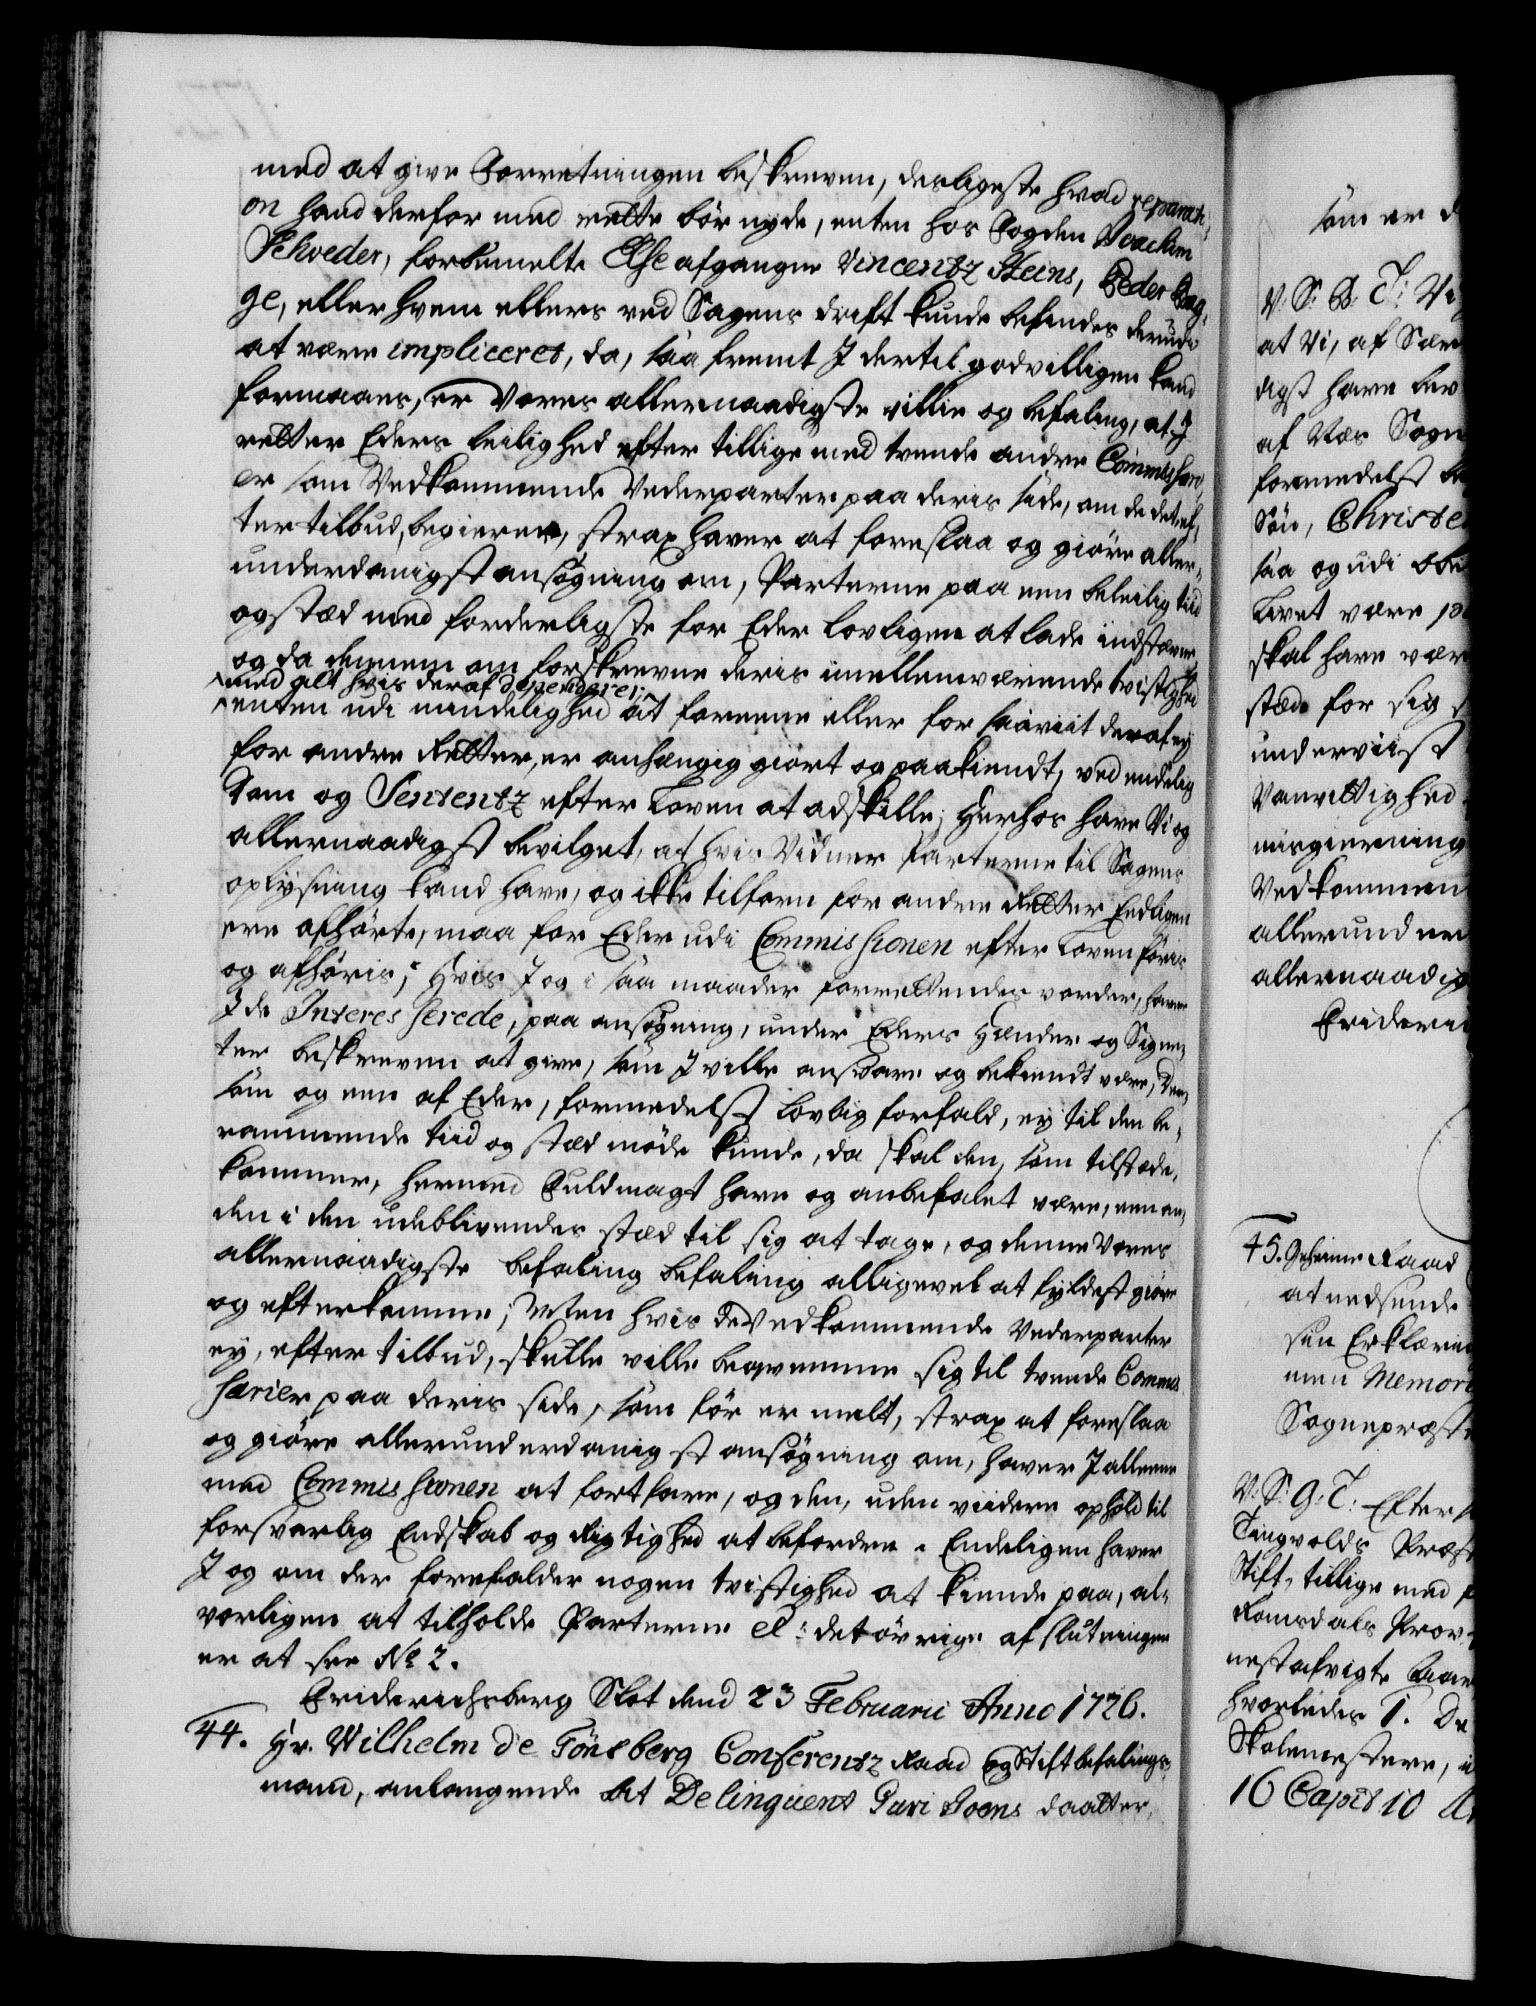 med at give Forretningen beskreven, desligeste hvad reparati¬
on hand derfor med rette bör nyde, enten hos Fogden Joachim
Schveder, forbemelte Else afgangne Vincentz Steins, Peder Bag¬
ge, eller hvem ellers ved Sagens drift kunde befindes derudi
at være impliceret, da, saa fremt I dertil godvilligen kand
formaaes, er Vores allernaadigste villie og befaling, at I
retter Eders leilighed efter tillige med tvende andre Commissari¬
er som Vedkommende Vederparter paa deris side, om de det ef¬
ter tilbud, begierer, strax haver at foreslaa og giöre aller¬
underdanigst ansögning om, Parterne paa een beleilig tiid
og stæd med forderligste for Eder lovligen at lade indstævne
og da dennem om forskrevne deris imellemværende tvistighed
med alt hvis deraf dependerer,
enten udi mindelighed at foreene eller for saaviit deraf ey
for andre Retter, er anhængig giort og paakiendt, ved endelig
Dom og Sententz efter Loven at adskille; Herhos have Vi og
allernaadigst bevilget, at hvis Vidner Parterne til Sagens
oplysning kand have, og ikke tilforn for andre Retter Endeligen
ere afhörte, maa for Eder udi Commissionen efter Loven föris
og afhöris; Hvis I og i saa maader forrettendes vorder, haver
I de Interesserede, paa ansögning, under Eders Hænder og Signe¬
ter beskreven at give, som I ville ansvare og bekiendt være, Der¬
som og een af Eder, formedelst lovlig forfald, ey til den be¬
rammende tiid og stæd möde kunde, da skal den, som tilstæde
kommer, hermed Fuldmagt have og anbefalet være, een an¬
den i den udeblivendes stæd til sig at tage, og denne Vores
allernaadigste befaling befaling alligevel at fyldestgiöre
og efterkomme; Men hvis de Vedkommende Vederparter
ey, efter tilbud, skulle ville beqvemme sig til tvende Commis
sarier paa deris side, som för er melt, strax at foreslaa
og giöre allerunderdanigst ansögning om, haver I alleene
med Commissionen at fortfare, og den, uden viidere ophold til
forsvarlig Endskab og Rigtighed at befordre. Endeligen haver
I og om der forefalder nogen tvistighed at kiende paa, al¬
vorligen at tilholde Parterne etc: det övrige af slutningen
er at see No 2.
Friderichsberg Slot dend 23 Februarii Anno 1726.
44. Hr. Wilhelm de Tönsberg Conferentz Raad og Stiftbefalings¬
mand, anlangende at Delinquent Guri Joens daatter,
som er d
V: S: B: T: Vi
at Vi, af Sær
digst have bev
af Næs Sogn
formedelst
Sön, Christe
saa og udi
Livet være
skal have vær
stæd for sig
underviist
Vanvittighed
misgierning
Vedkommen
allerunder
allernaadig
Frideri
45. Geheime Raad
at nedsende
sin Erklæring
men Memori
Sognepræst
V: S: G: T: Efter
Tingvolds Præst
Stift, tillige med
Romsdals Prov
nestafvigte Aar
hvorledes 1. De
Skolemestere, i
16 Capit 10